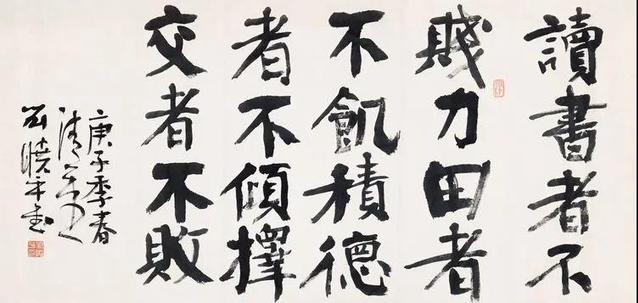 讀書者不
賤力田者
不飢積德
者不傾擇
交者不敗
庚子季春
清
曉牛書